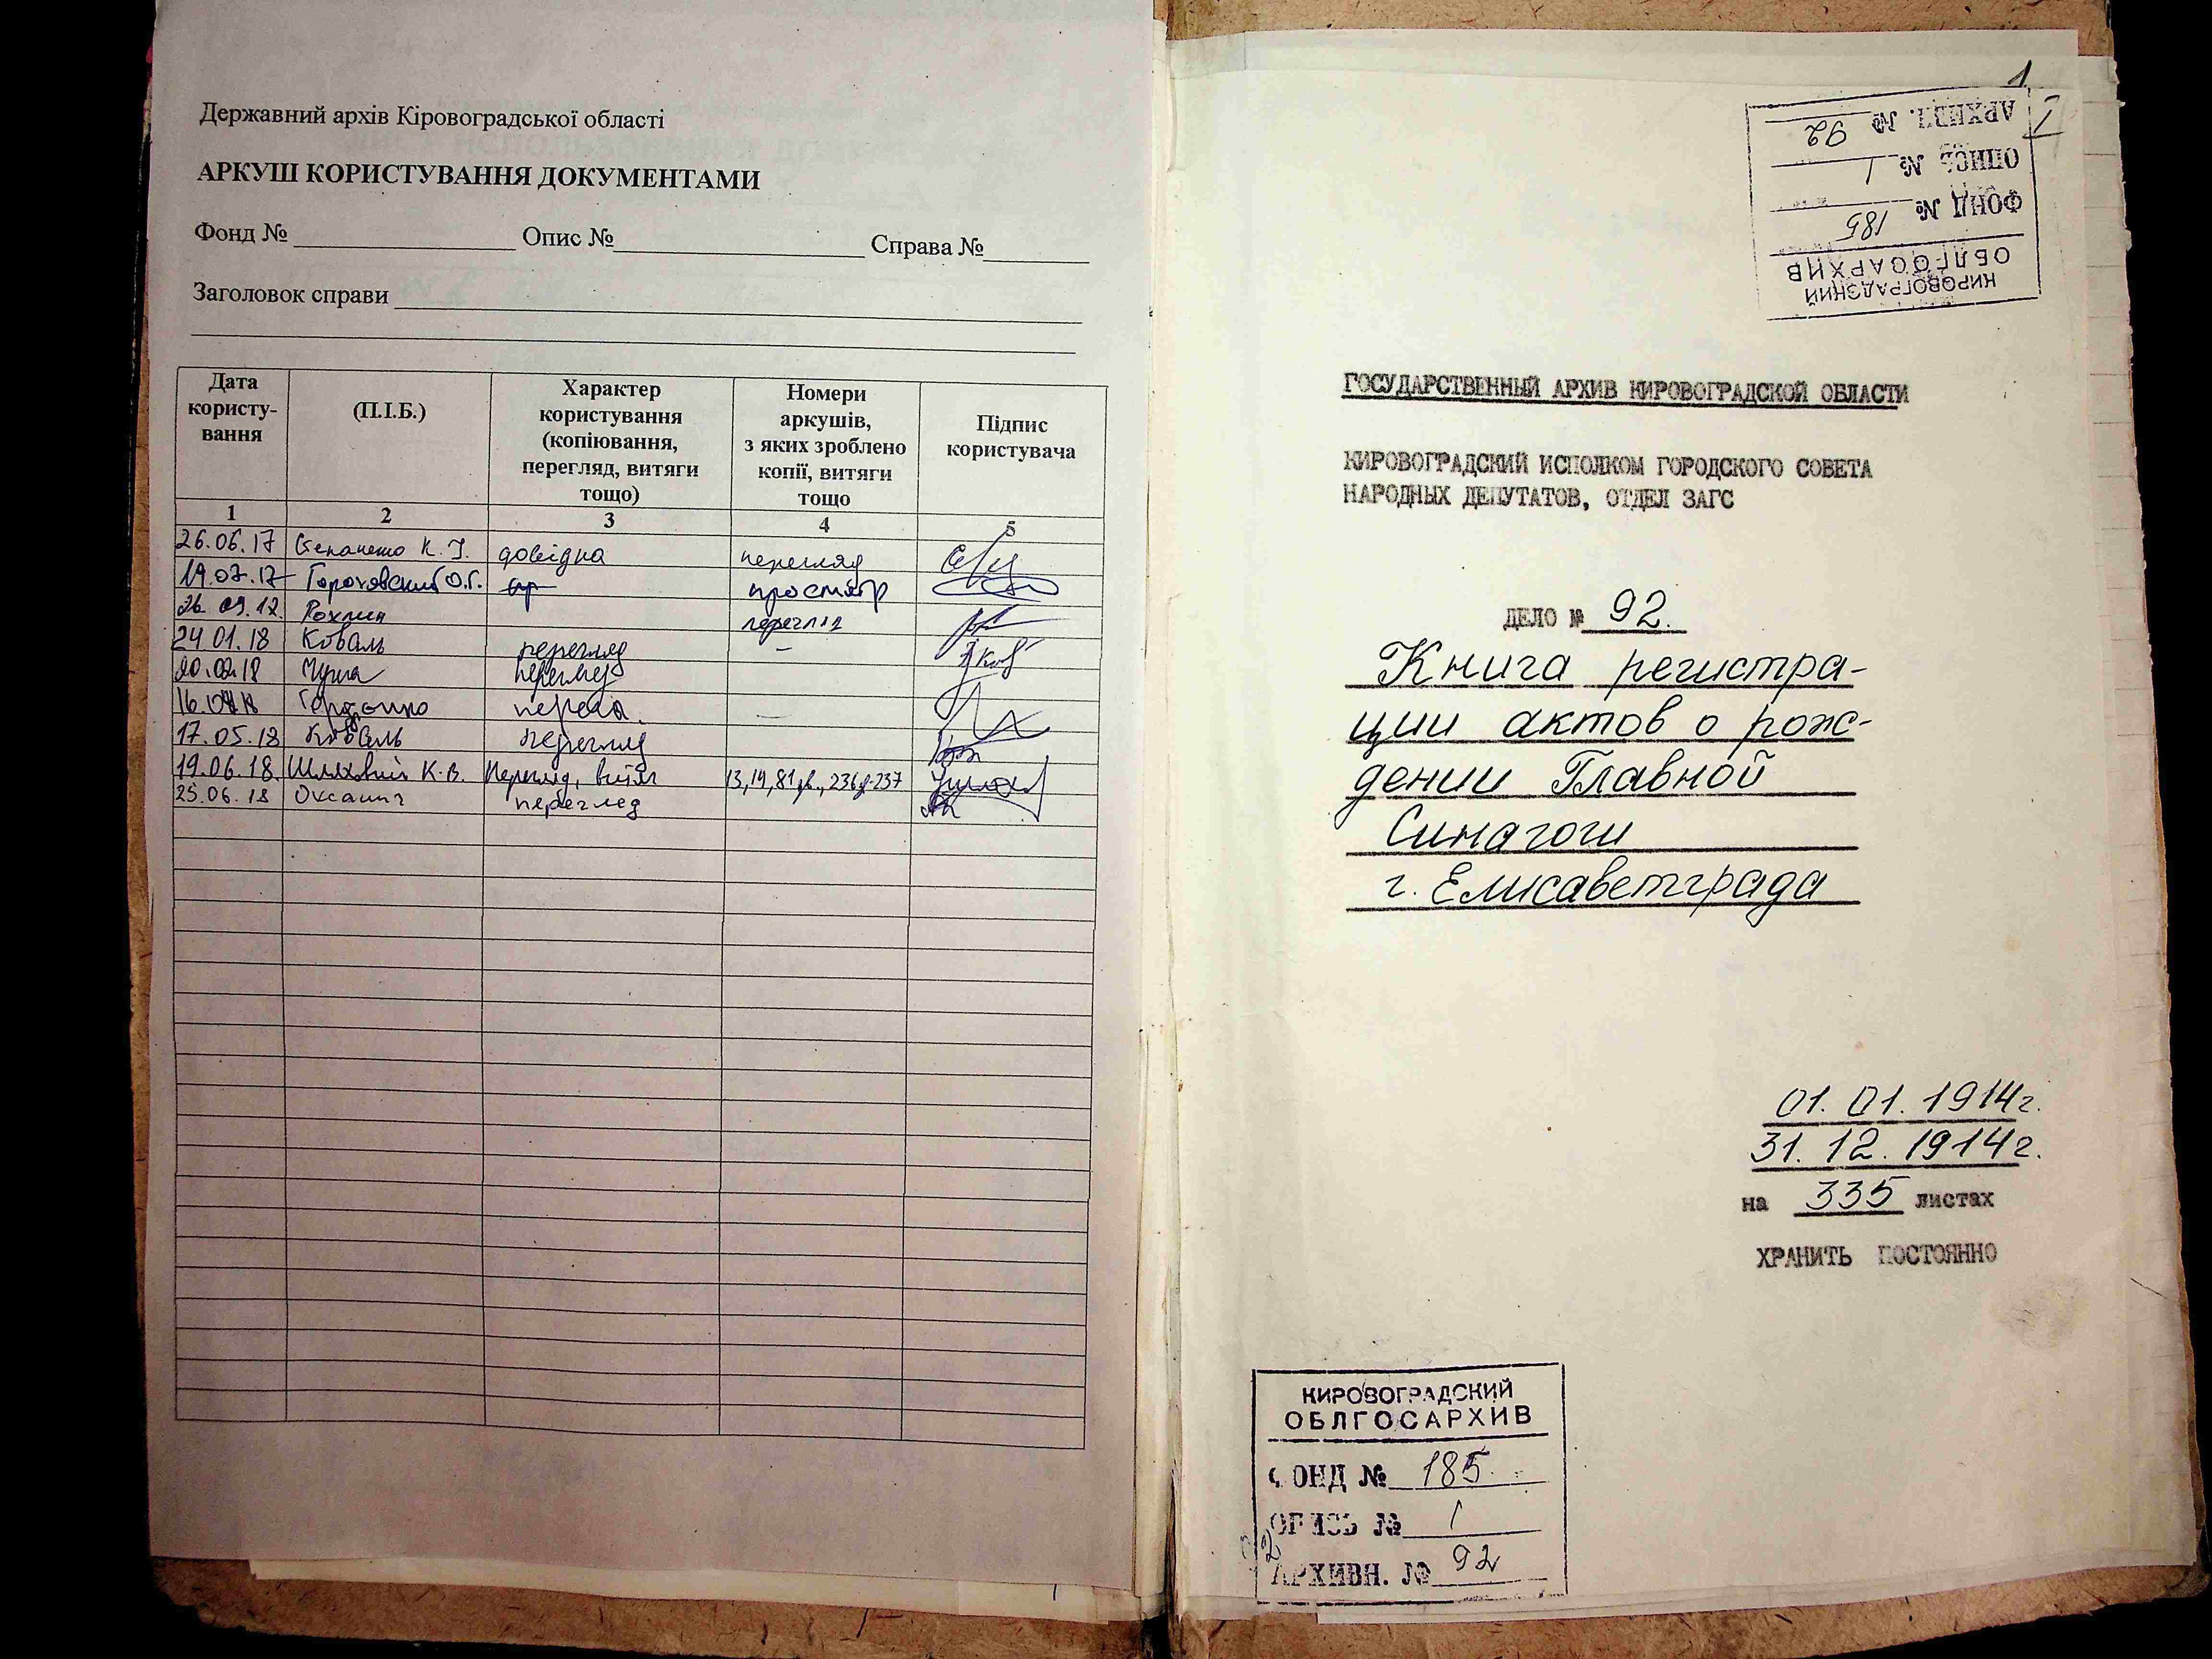 Державний архів Кіровоградської області
АРКУШ КОРИСТУВАННЯ ДОКУМЕНТАМИ
Фонд № Опис № Справа №
Заголовок справи
Дата користу-вання
(П.І.Б.)
Характер користування (копіювання, перегляд, витяги тощо)
Номери аркушів, з яких зроблено копії, витяги тощо
Підпис користувача
1 2 3 4 5
26.06.17 довідка перегляд
19.07.17 Гороховский О.Г. просмотр
26.09.17 Рохлин перегляд
24 01.18 Коваль перегляд –
20.02.18 перегляд
16. –
17.05.18 Коваль перегляд
19.06.18. Шляховий К.В. Перегляд, витяг 13, 14, 81
25.06.18 перегляд
1
I
КИРОВОГРАДСКИЙ
ОБЛГОСАРХИВ
ФОНД № 185
ОПИСЬ № 1
АРХИВН. № 92
ГОСУДАРСТВЕННЫЙ АРХИВ КИРОВОГРАДСКОЙ ОБЛАСТИ
КИРОВОГРАДСКИЙ ИСПОЛКОМ ГОРОДСКОГО СОВЕТА
НАРОДНЫХ ДЕПУТАТОВ, ОТДЕЛ ЗАГС
ДЕЛО № 92.
Книга регистра-
ции актов о рож-
дении Главной
Синагоги
г. Елисаветграда
01.01.1914г.
31.12.1914г.
на 335 листах
ХРАНИТЬ ПОСТОЯННО
КИРОВОГРАДСКИЙ
ОБЛГОСАРХИВ
ФОНД № 185
ОПИСЬ № 1
АРХИВН. № 92